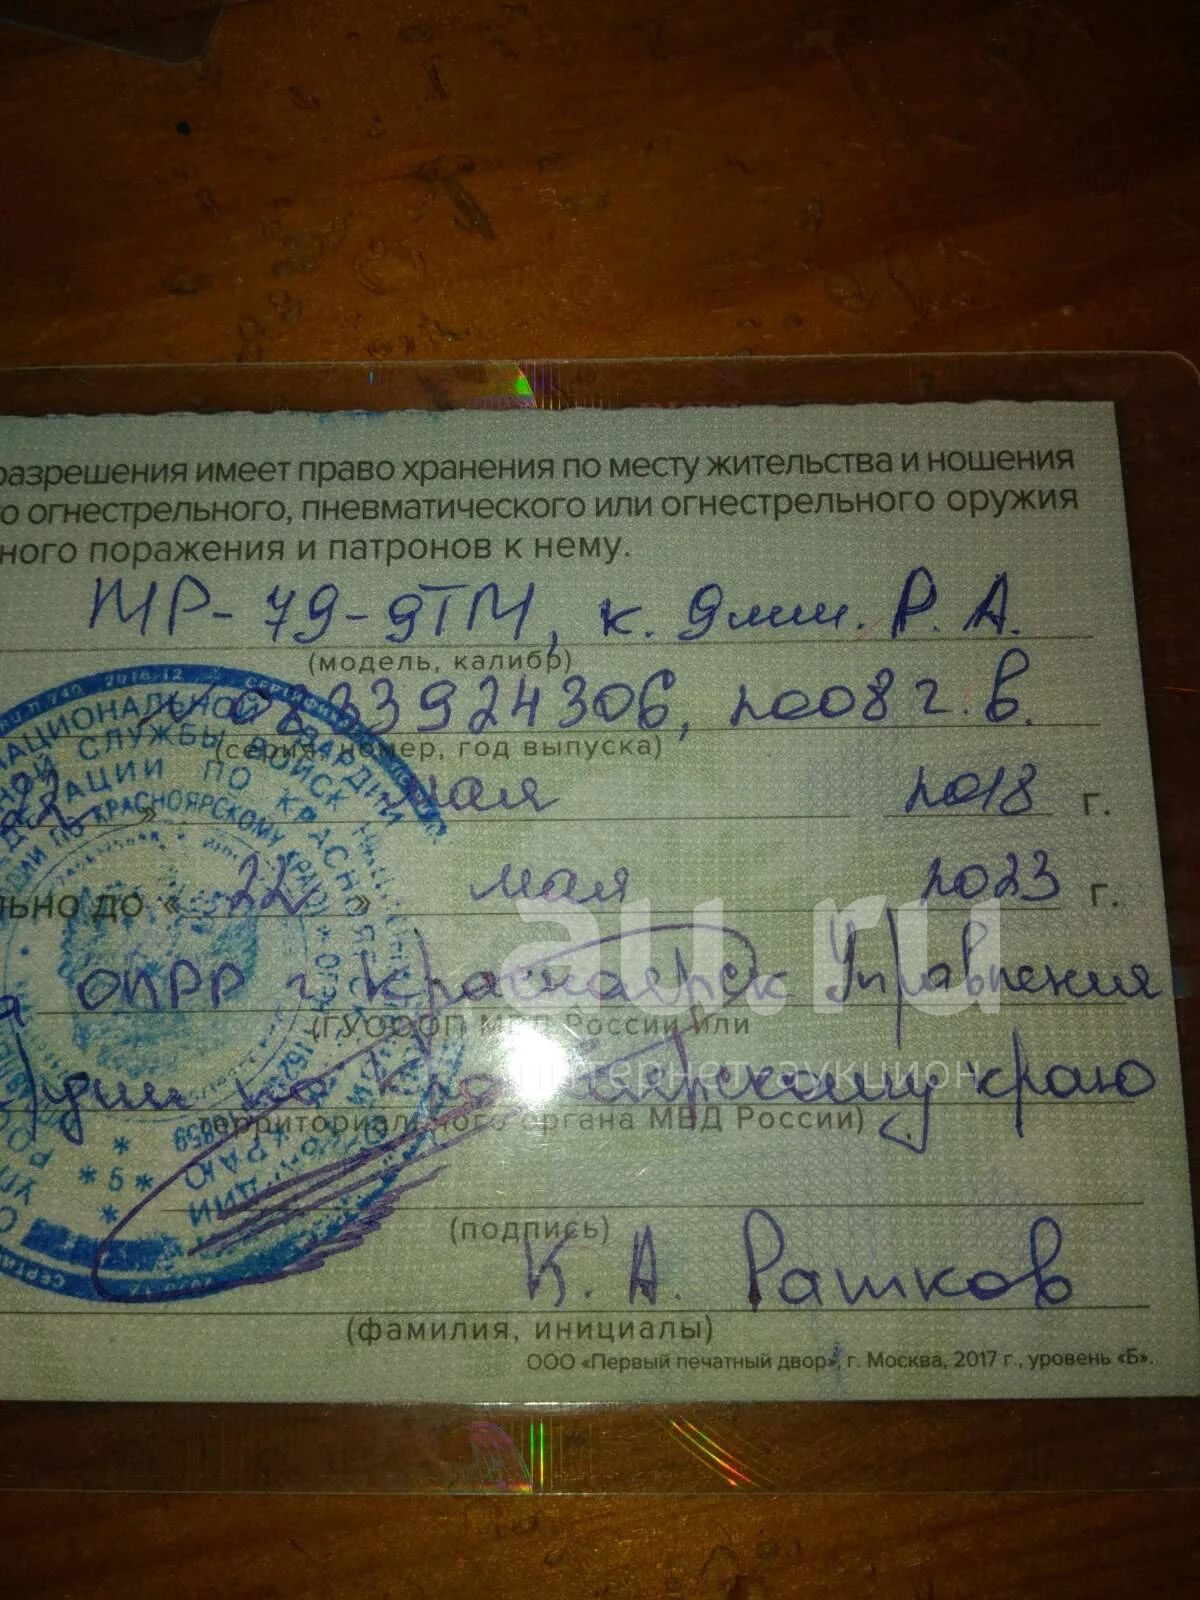 разрешения имеет право хранения по месту жительства и ношения
о огнестрельного, пневматического или огнестрельного оружия
ного поражения и патронов к нему.
МР-79-9ТМ, к. 9мм. Р.А.
(модель, калибр)
0833924306, 2008 г.в.
(серия, номер, год выпуска)
22 » мая 2018 г.
льно до « 22 » мая 2023 г.
ОЛРР г. Красноярск Управления
(ГУОООП МВД России или
по Красноярскому краю
территориального органа МВД России)
(подпись)
К. А. Рашков
(фамилия, инициалы)
ООО «Первый печатный двор», г. Москва, 2017 г., уровень «Б».
au.ru
интернет-аукцион